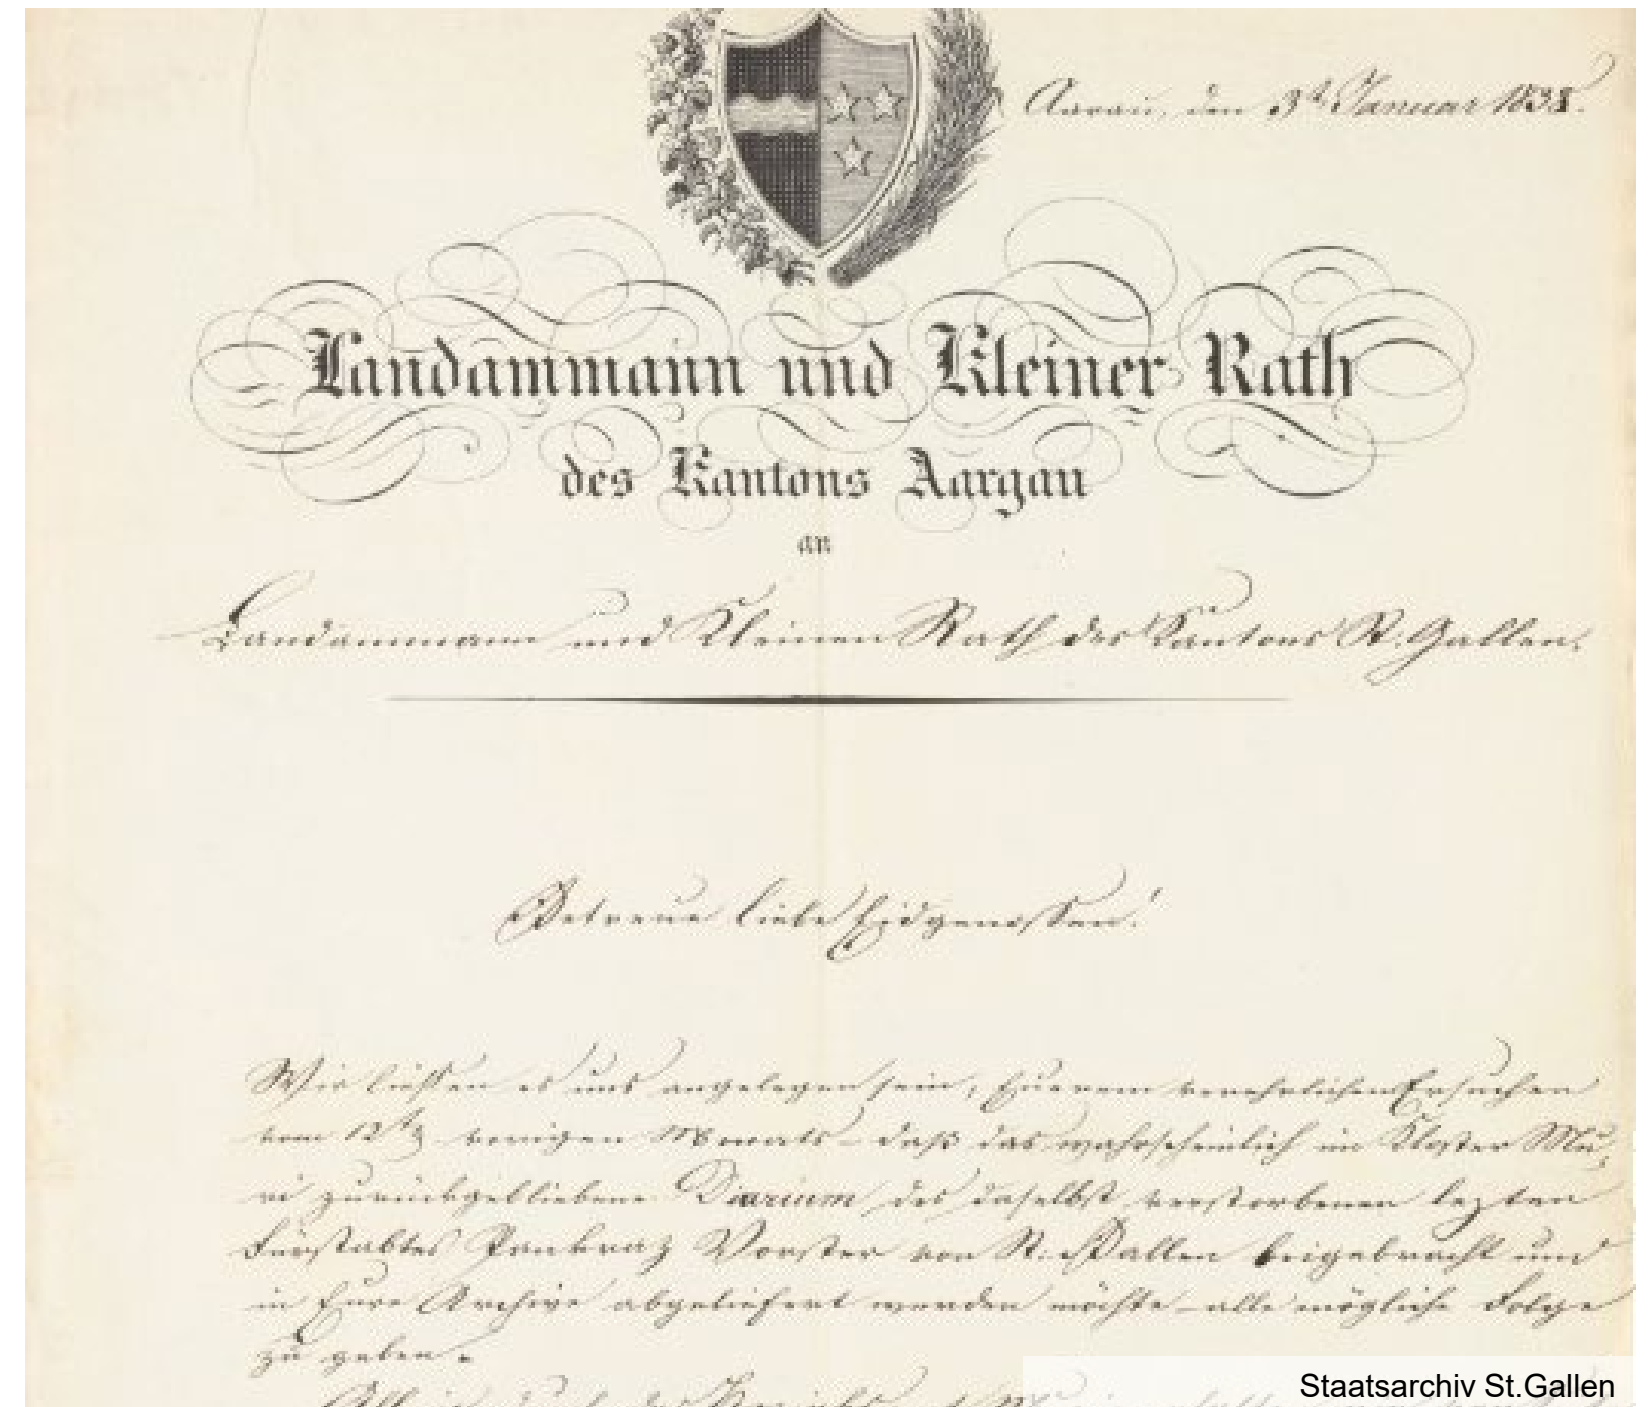 Aarau, den 3t. Januar 1838.
Landammann und Kleiner Rath
des Kantons Aargau
an
Landammann und Kleinen Rath des Kantons St. Gallen.
Getreue liebe Eidgenossen!
Wir ließen es uns angelegen sein, Euerem verehrlichen Ersuchen
vom vorigen Monats – daß das wahrscheinlich im Kloster Mu-
ri zurückgebliebene Diarium des daselbst verstorbenen lezten
Fürstabtes Pankraz Vorster von St. Gallen beigebracht und
in Eure Archive abgeliefert werden möchte – alle mögliche Folge
zu geben.
Staatsarchiv St.Gallen